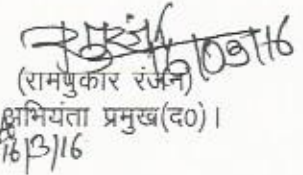 16/03/16
(रामपुकार रंजन)
अभियंता प्रमुख(द0)।
16/3/16